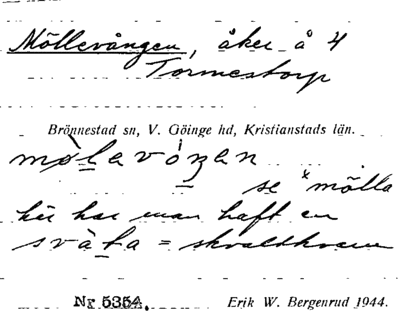 Möllevången, åker å 4
Tormestorp
Brönnestad sn, V. Göinge hd, Kristianstads län.
mø̀lavóŋan
se ˣmölla
här har man haft en
svàta = skvaltkvarn
Nr 5354.
Erik W. Bergenrud 1944.